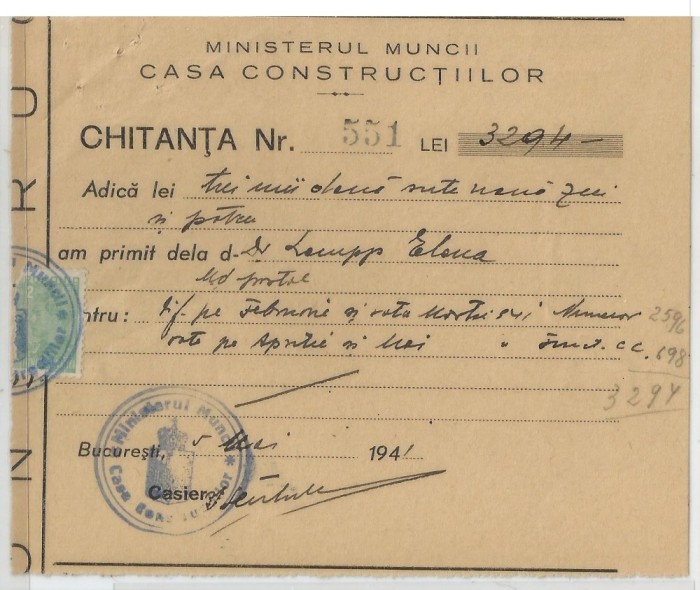 MINISTERUL MUNCII
CASA CONSTRUCȚIILOR
CHITANȚA Nr. 551 LEI 3294 —
Adică lei trei mii două sute nouă zeci
și patru
am primit dela d- Dr Lempp Elena
pe Februarie și rata Martie 941 Numerar 2596
rate pe Aprilie și Mai " 698
3294
București, 5 Mai 1941
Casier
Ministerul Muncii
Casa Construcțiilor
Muncii
O N R U